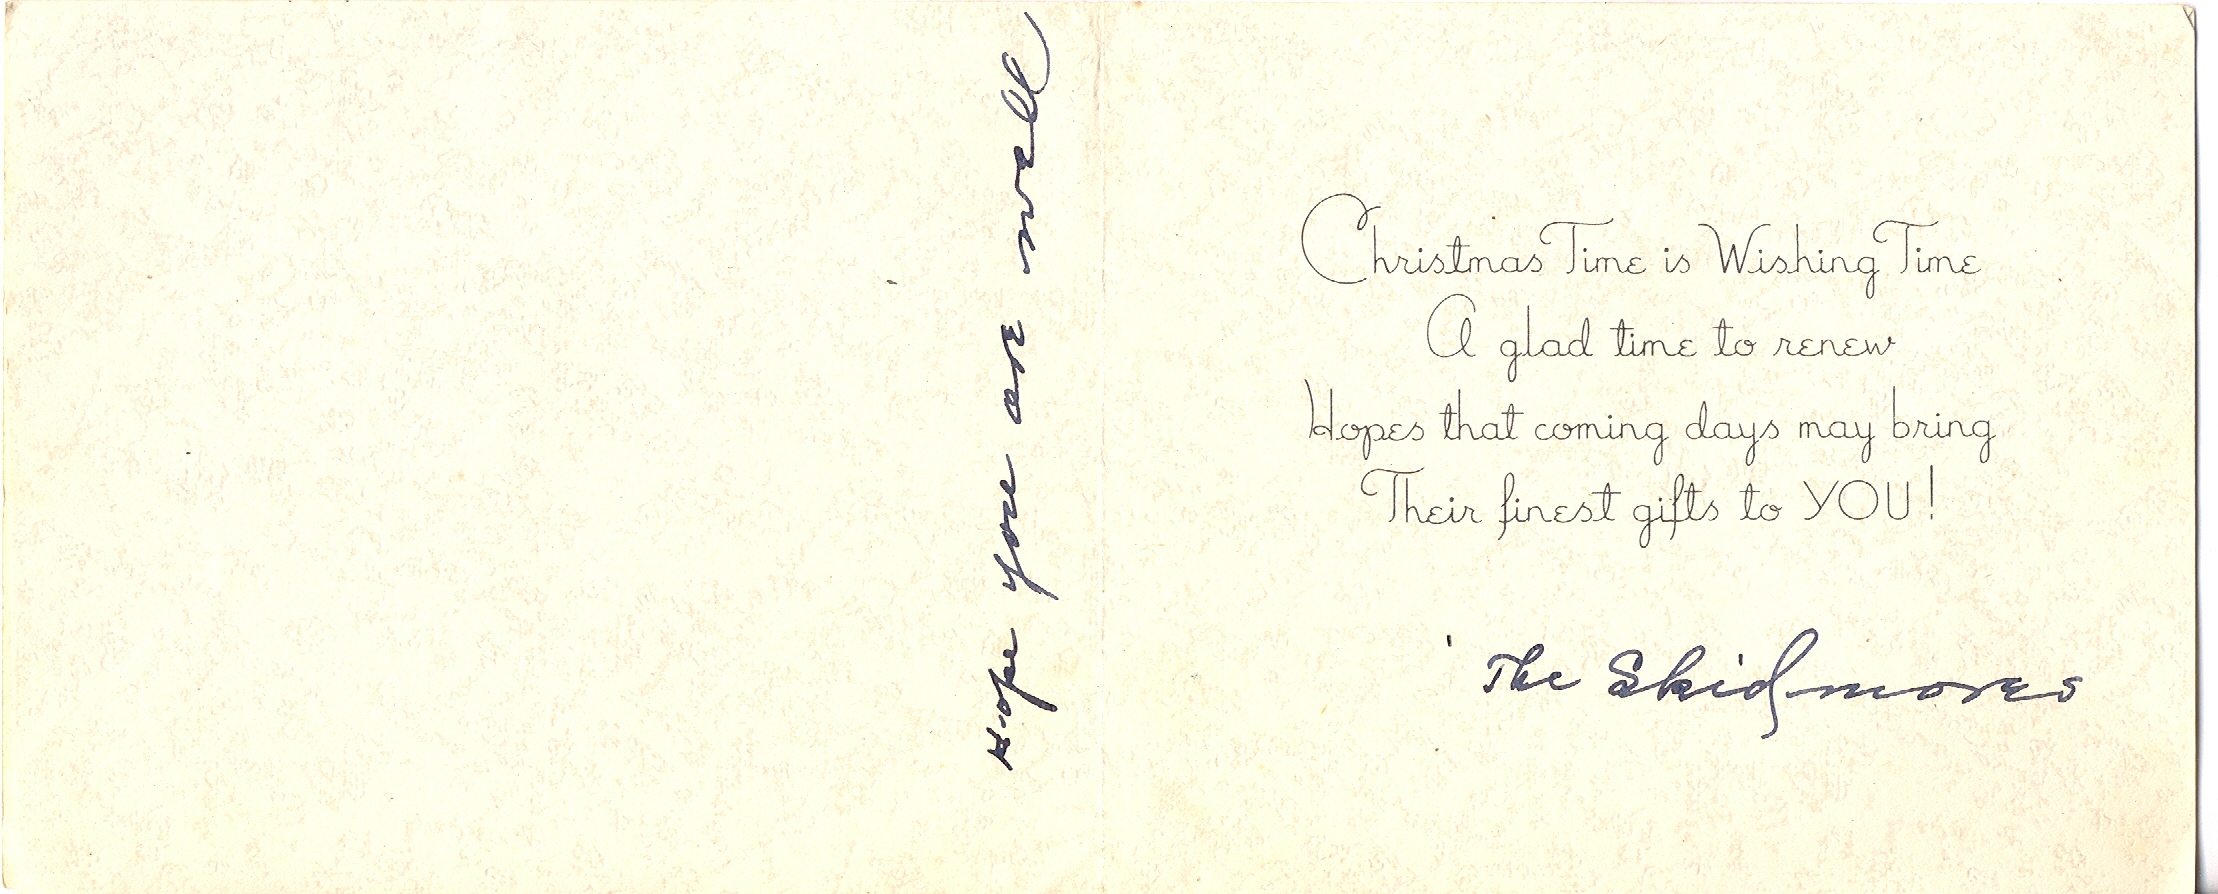 Hope you are well
Christmas Time is Wishing Time
A glad time to renew
Hopes that coming days may bring
Their finest gifts to YOU!
The Skidmores